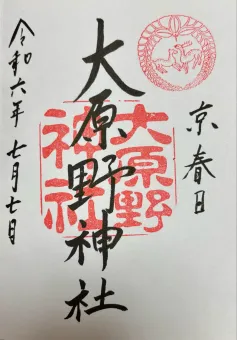 京春日
大原野神社
大原野
神社
令和六年七月七日